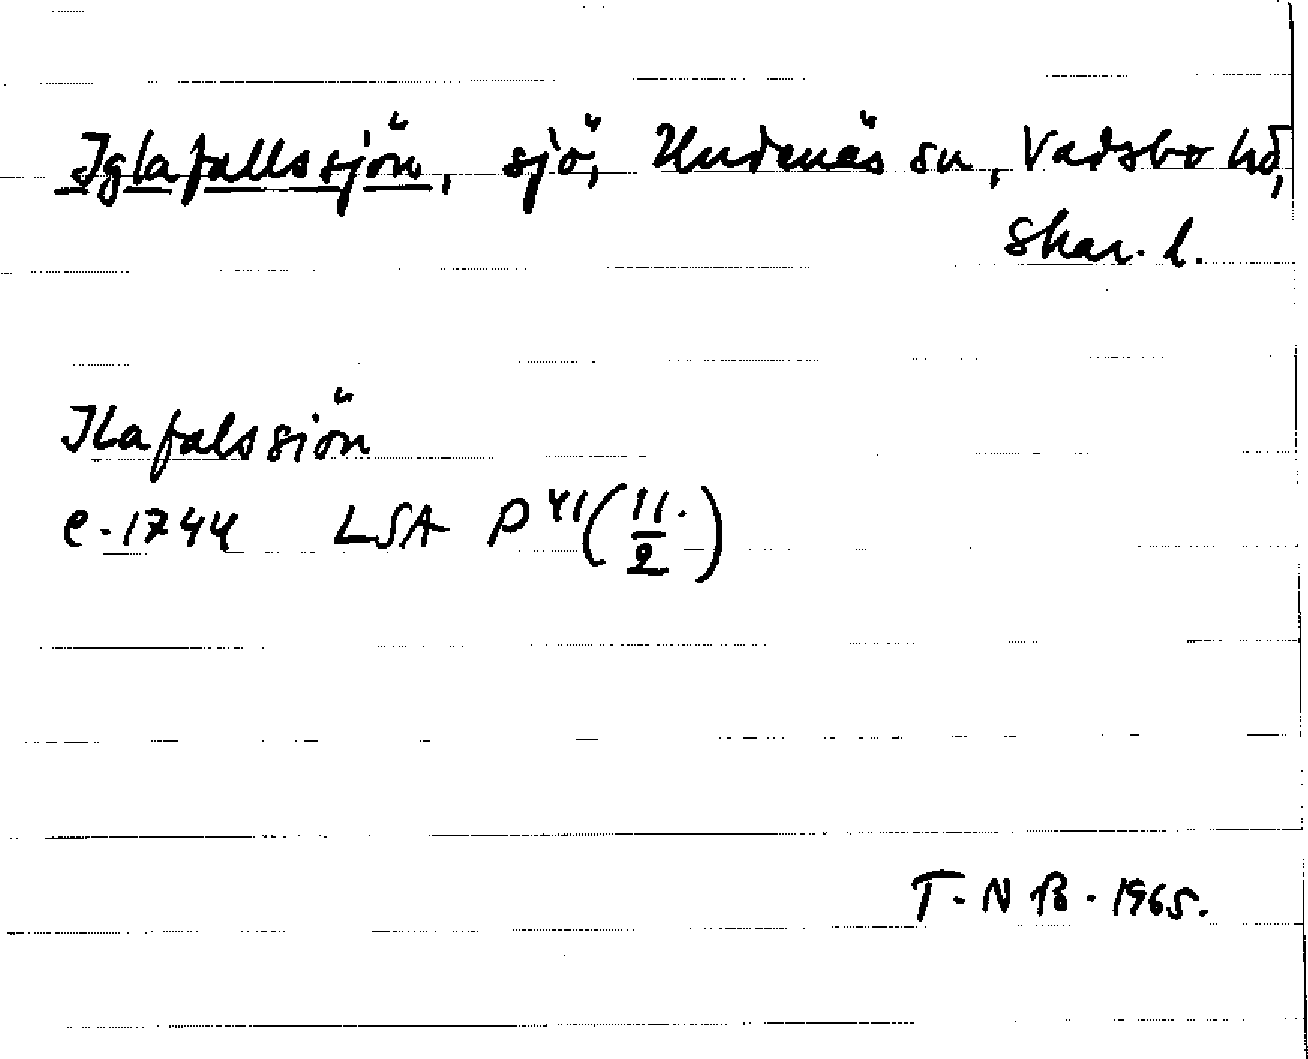 Iglafallssjön, sjö, Undenäs sn, Vadsbo hd,
Skar. l.
Ilafalssiön
e. 1744 LSA P 41 (11./2)
T. N B. 1965.